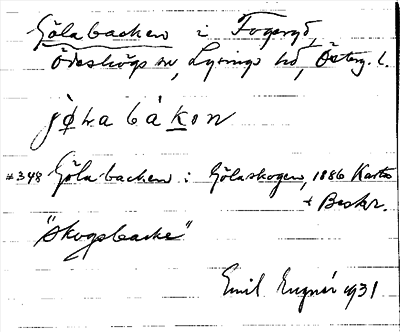 Göla backen i Fogeryd,
Ödeshögs sn, Lysings hd, Österg. l.
jø̀ɫa bàkən
*348 Göla backen i Gölaskogen, 1886 Karta
+ Beskr.
"Skogsbacke"
Emil 1931